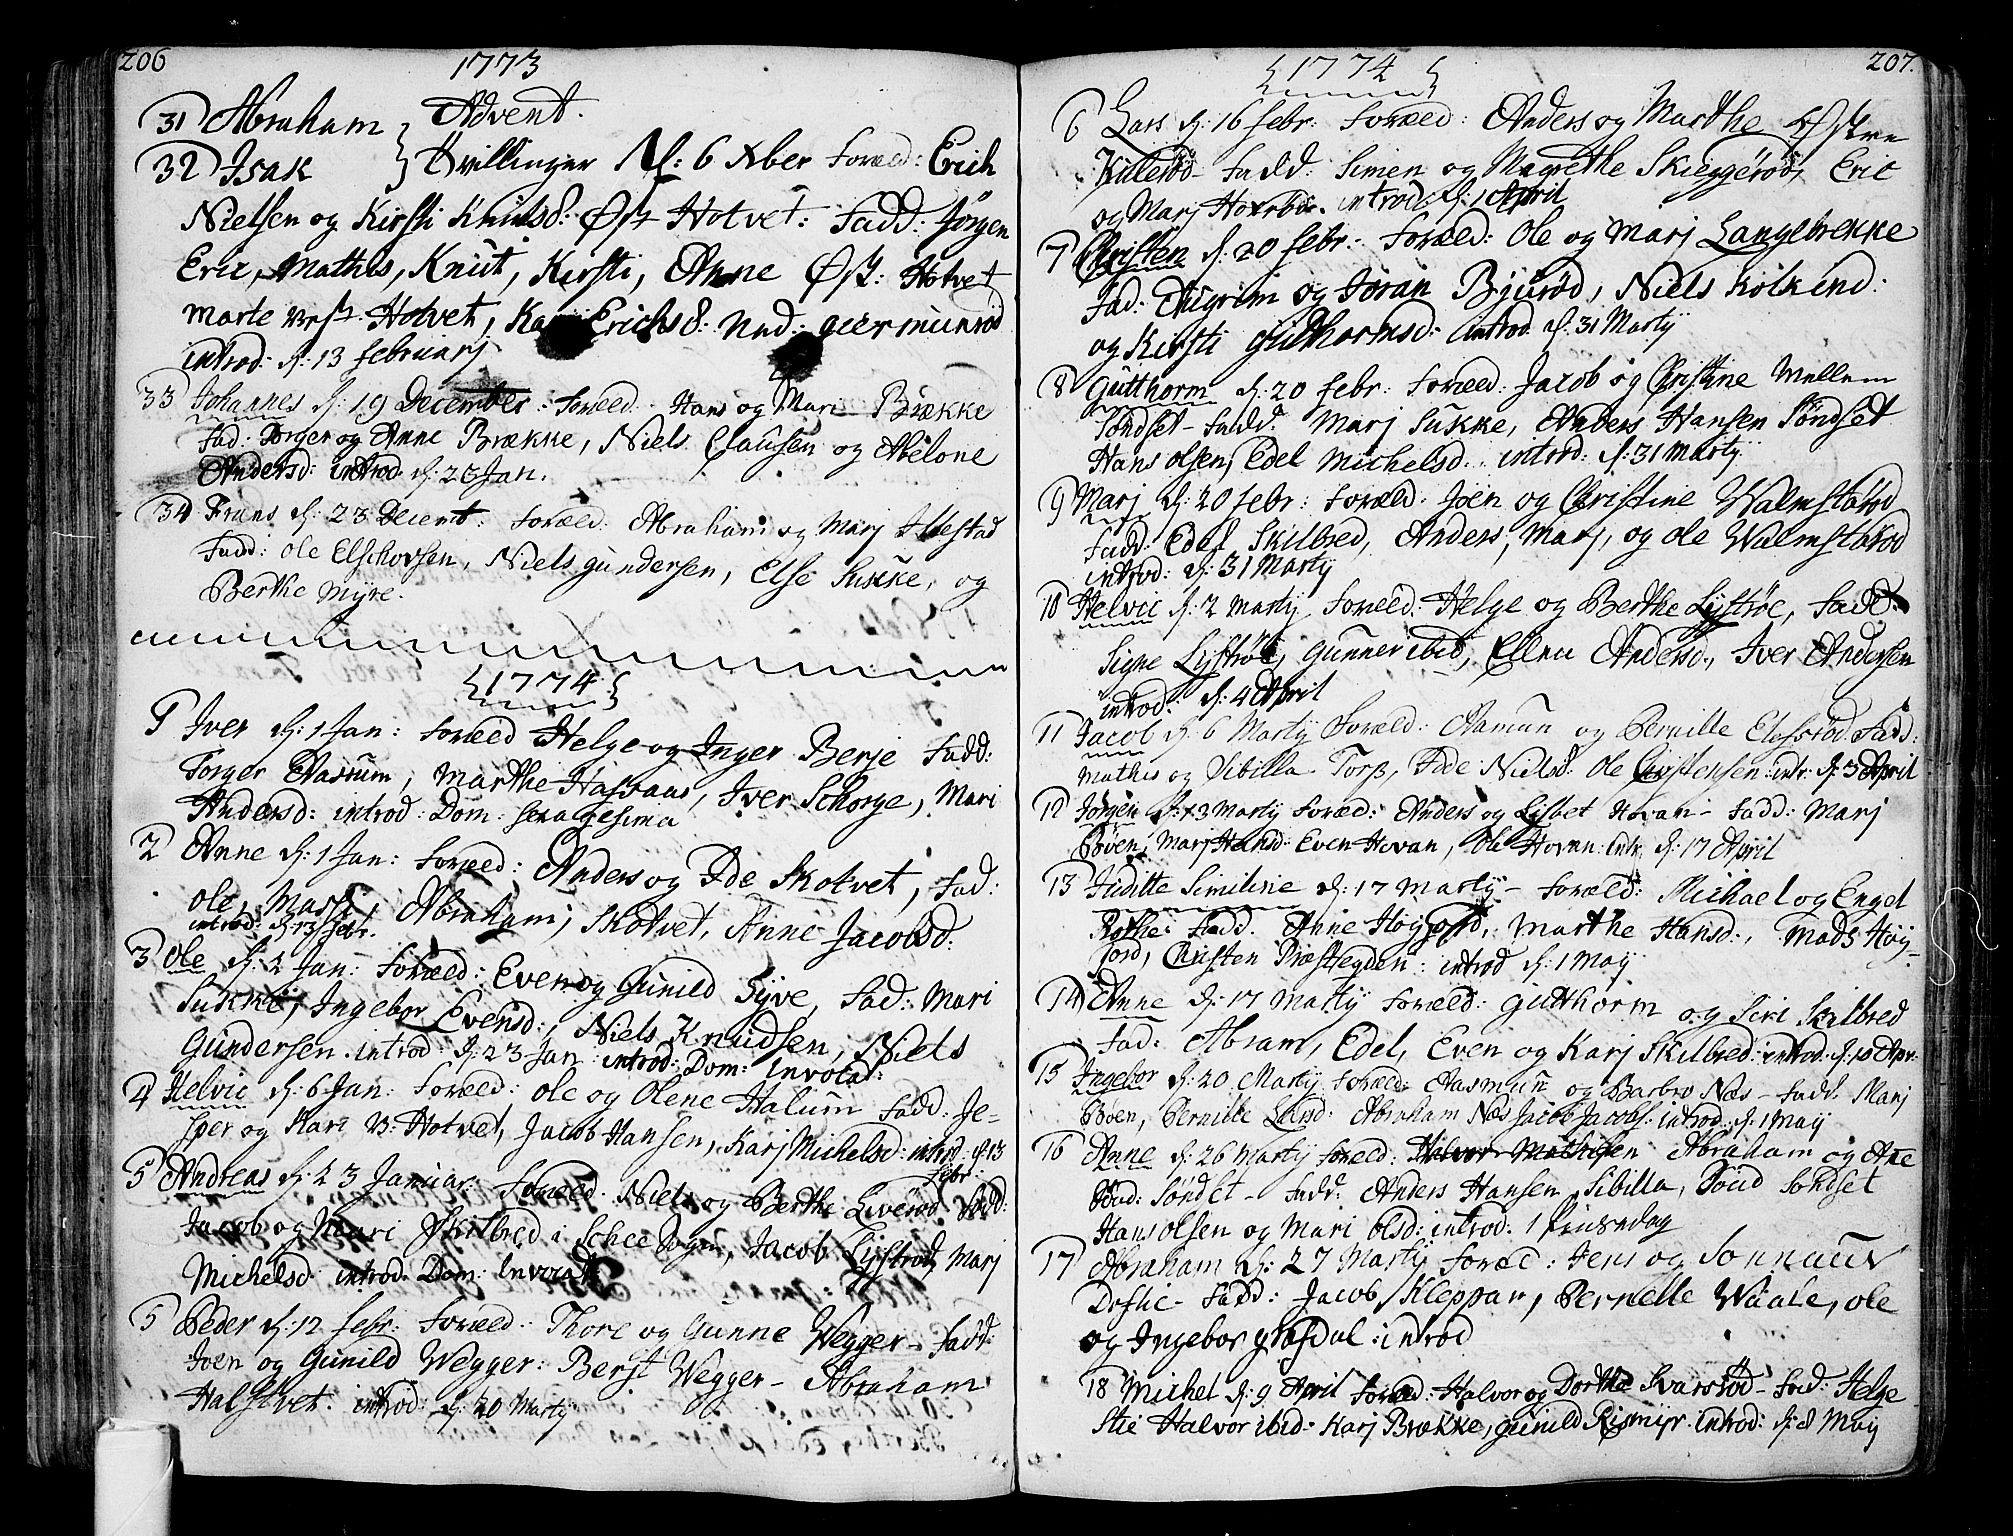 206
1773
Advent.
31 Abraham
32 Isak } Tvillinger d: 6 Xber foræld: Erich
Nielsen og Kirsti Knudsd: Øst Hotvet: Fadd: Jørgen
Eric, Mathis, Knut, Kirsti, Anne Øst: Hotvet
Marte Vest Hotvet, Kari Erichsd: Ned: giermunrod
introd: d: 13 februarj
33 Johannes d: 19 December: foræld: Hans og Mari Brække
Fad: Torger og Anne Brække, Niels Clausen og Abelone
Andersd: introd: d: 23 Jan.
34 Frans d: 23 Decemb: foræld: Abraham og Marj
Fadd: Ole, Niels gundersen, Else Sukke, og
Berthe Myre.
1774
1 Iver d: 1 Jan: foræld Helge og Inger Berje Fadd:
Torger, Marthe, Iver Schorge, Mari
Andersd: introd: Dom: sexagesima
2 Anne d: 1 Jan: foræld: Anders og Ide Skotvet, Fad:
Ole, Abraham, Skotvet, Anne Jacobsd:
introd: d: 13 febr.
3 Ole d: 2 Jan: foræld: Even og Gunild Syve, Fad: Mari
Ingebor Evensd:, Niels Knudsen, Niels
Gundersen. introd: d: 23 Jan: introd: Dom: Invocav:
4 Helvic d: 6 Jan: foræld: Ole og Olene Halum Fadd: Je-
sper og Kari N: Hotvet, Jacob Hansen, Karj Michelsd: introd: d 13
febr:
5 Andreas d: 23 Januar: foræld: Niels og Berthe Liverød Fadd:
Jacob og Mari Skilbred i Schee Sogn, Jacob Lystrød, Marj
Michelsd: introd. Dom: Invocav:
5 Peder d: 12 febr: foræld: Thore og Gunne Wegger - Fadd:
Joen og Gunild Wegger: Wegger - Abraham
Halstvet. introd: d: 20 Martij
207.
1774
6 Lars d: 16 febr: foræld: Anders og Marthe Østre
Kullerød - Fadd: Simen og Magrethe Skieggerød, Eric
og Marj introd: d: 1 April
7 Christen d: 20 febr: foræld: Ole og Marj Langebrekke
Fad: Augrim og Joran Bjurød, Niels
og Kirsti Guthormsd: introd d: 31 Martij
8 Gutthorm d: 20 febr: foræld: Jacob og Christine Mellem
Tøndset - Fadd: Marj Sukke, Anders Hansen Søndset
Hans Olsen, Edel Michelsd: introd: d: 31 Martij
9 Marj d: 20 febr: foræld: Joen og Christine Walmstarød
Fadd: Edel Skilbred, Anders, Marj, og Ole Walmstarød
introd: d: 31 Martij
10 Helvic d: 2 Martij foræld: Helge og Berthe Lystrøe, Fadd:
Signe Lystrøe, Gunner ibid, Ellen Andersd., Iver Andersen
introd: d: 4 April
11 Jacob d: 6 Martij foræld: Aamun og Pernille Fadd:
Mathis og Sibilla Torp, Ide Nielsd: Ole Christensen: intr: d: 3 April
12 Jørgen d: 13 Martij foræld: Anders og Lisbet Hovan - Fadd: Marj
Bøven, Marj Hansd: Even Hovan, Ole Hovan: intr: d: 17 April
13 Juditte Similine d: 17 Martij - foræld: Michael og Engel
Rothe: Fadd. Anne Høyjord, Marthe Hansd:, Mads Høy-
jord, Christen Præstegden: introd d: 1 Maij
14 Anne d: 17 Martij foræld: Gutthorm og Siri Skilbred
Fad: Abram, Edel, Even og Karj Skilbred: introd: d: 10 Apr:
15 Ingebor d: 20 Martij foræld: Aasmun og Barbro Næs - Fadd. Marj
Bøen, Pernille Larsd: Abraham Næs Jacob Jacobs: introd: d: 1 Maij
16 Anne d: 26 Martij foræld: Halvor Mathisen Abraham og Ane
Søndet - Fadd: Anders Hansen, Sibilla, Søndset
Hans Olsen og Mari Olsd: introd: 1 Pinsedag
17 Abraham d: 27 Martij foræld: Jens og
- Fadd: Jacob Kleppan, Pernelle Waale, Ole
og Ingebor: introd
18 Michel d: 9 April foræld: Halvor og Dorthe Svarstød - Fad: Helge
Stie Halvor ibid - Karj Brække, Gunild introd: d: 8 Maij